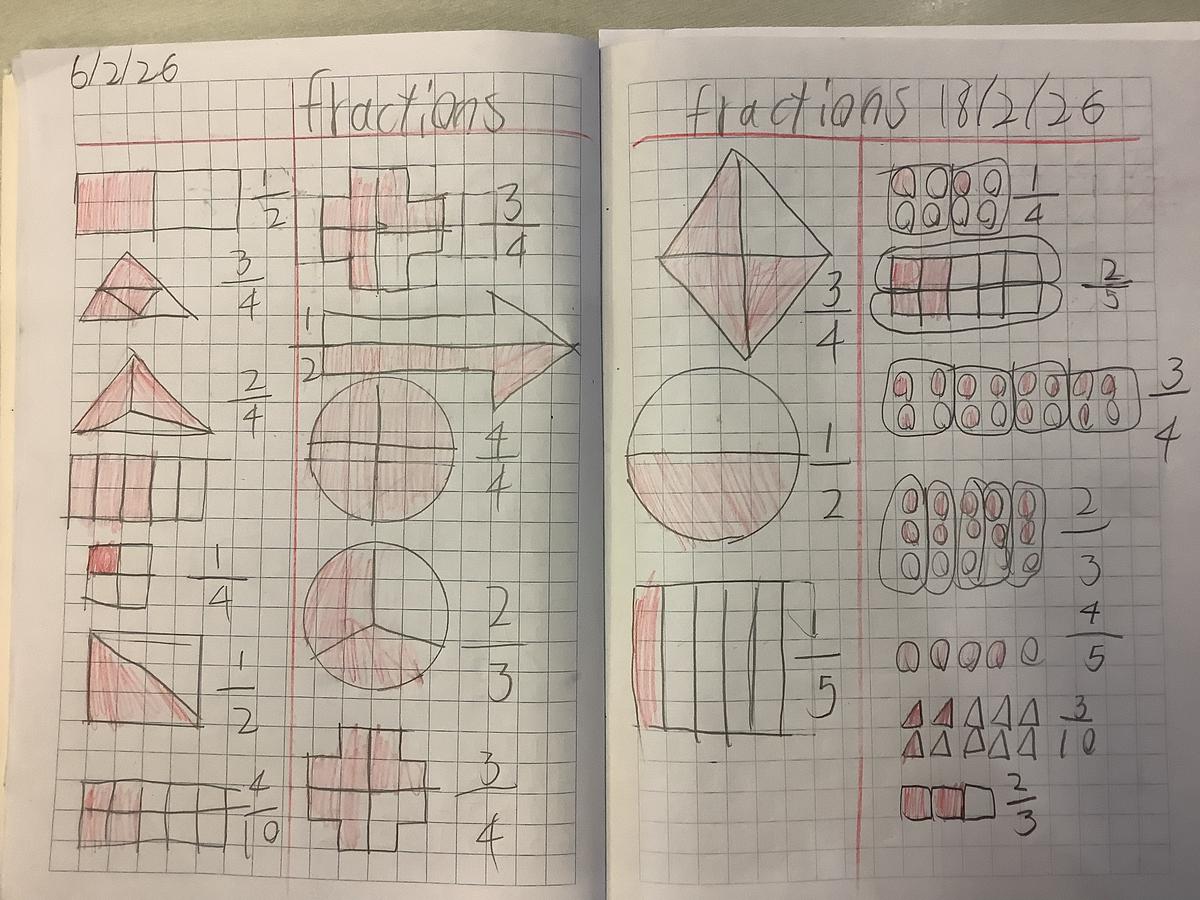 6/2/26
fractions
1/2
3/4
2/4
1/4
1/2
4/10
3/4
1
2
4/4
2/3
3/4
fractions 18/2/26
3/4
1/2
1/5
1/4
2/5
3/4
2/3
4/5
3/10
2/3